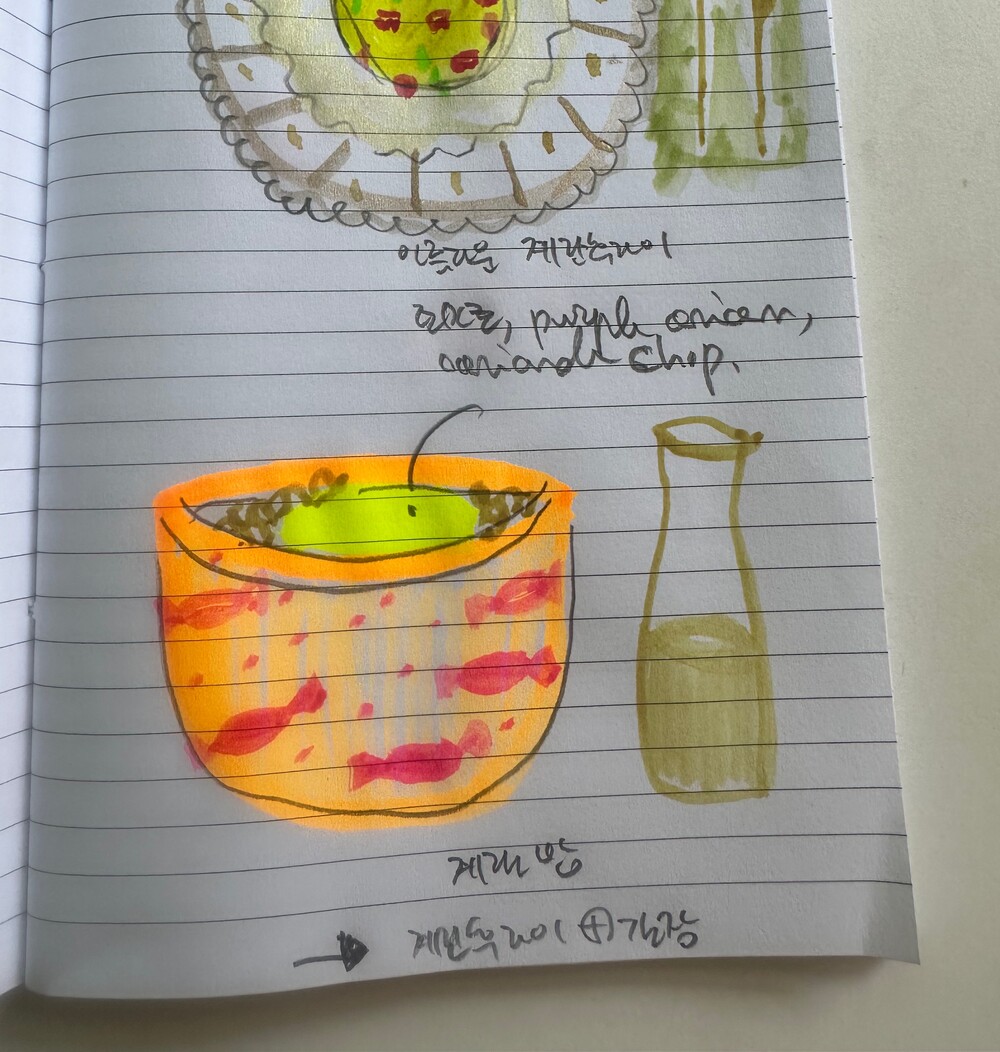 아름다운 계란후라이
토마토, purple onion,
coriander chop.
계란 밥
→ 계란후라이 ⊕ 간장